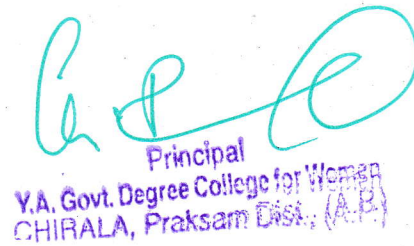 Principal
Y.A. Govt. Degree College for Women
CHIRALA, Praksam Dist., (A.P.)